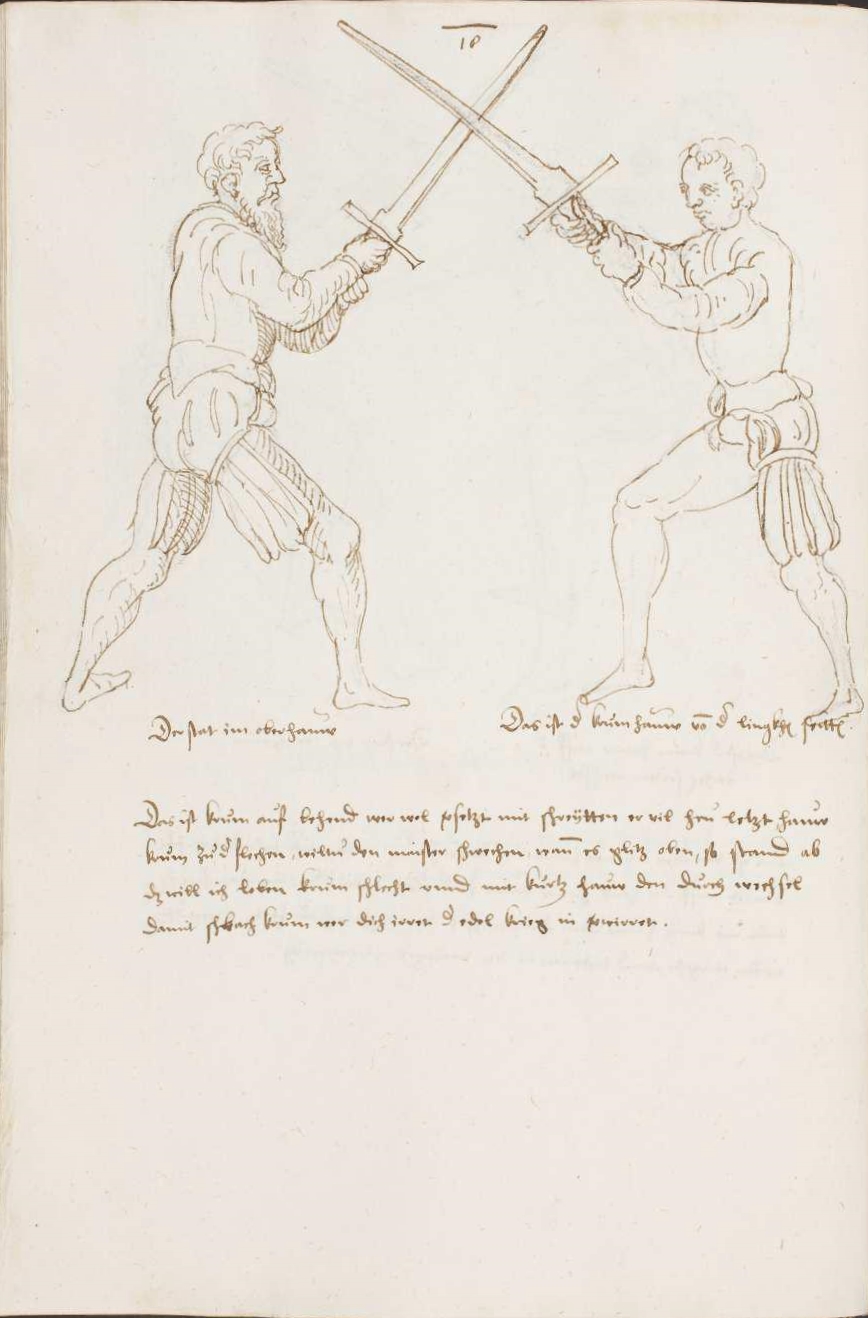 18
Der stat im oberhauw
Das ist d' krum hauw vō d' lingkhē seittē
Das ist krum auf behend wer wol vsetzt mit schreÿtten er vil heu letzt hauw
krum zů d' flechen, wiltu den maister schwechen, wañ es glitz oben, so stand ab
dz will ich loben krum schlecht vnnd mit kurtz hauw den durch wechsel
damit schbach krum wer dich irret d' edel krieg in vwirret.